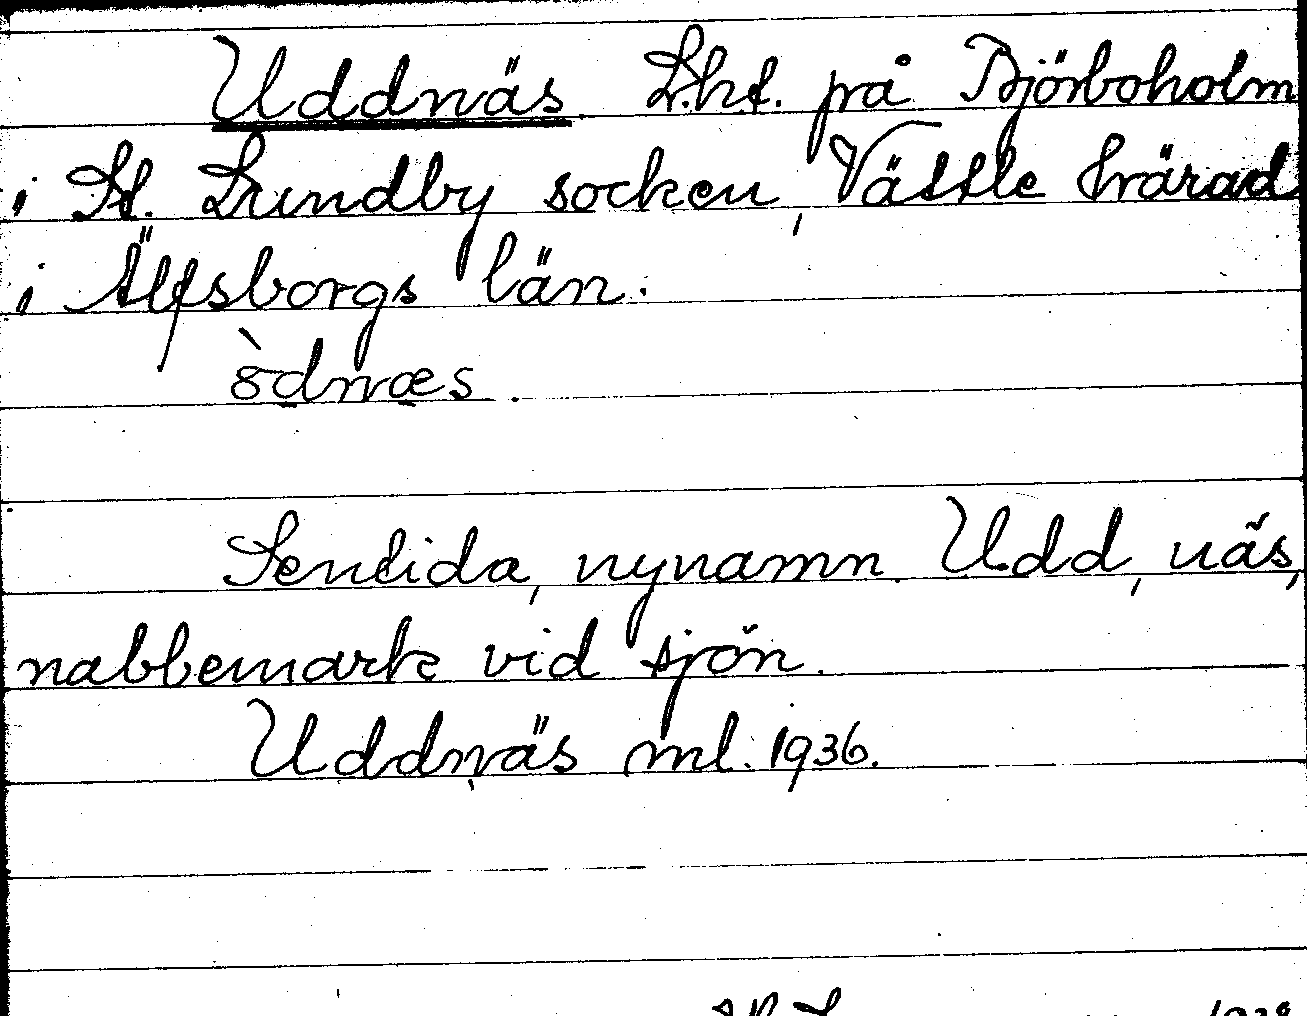 Uddnäs L.ht. på Björboholm
i St. Lundby socken, Vättle härad
i Älfsborgs län.
òdnæs.
Sentida, nynamn. Udd, näs,
nabbemark vid sjön.
Uddnäs ml. 1936.